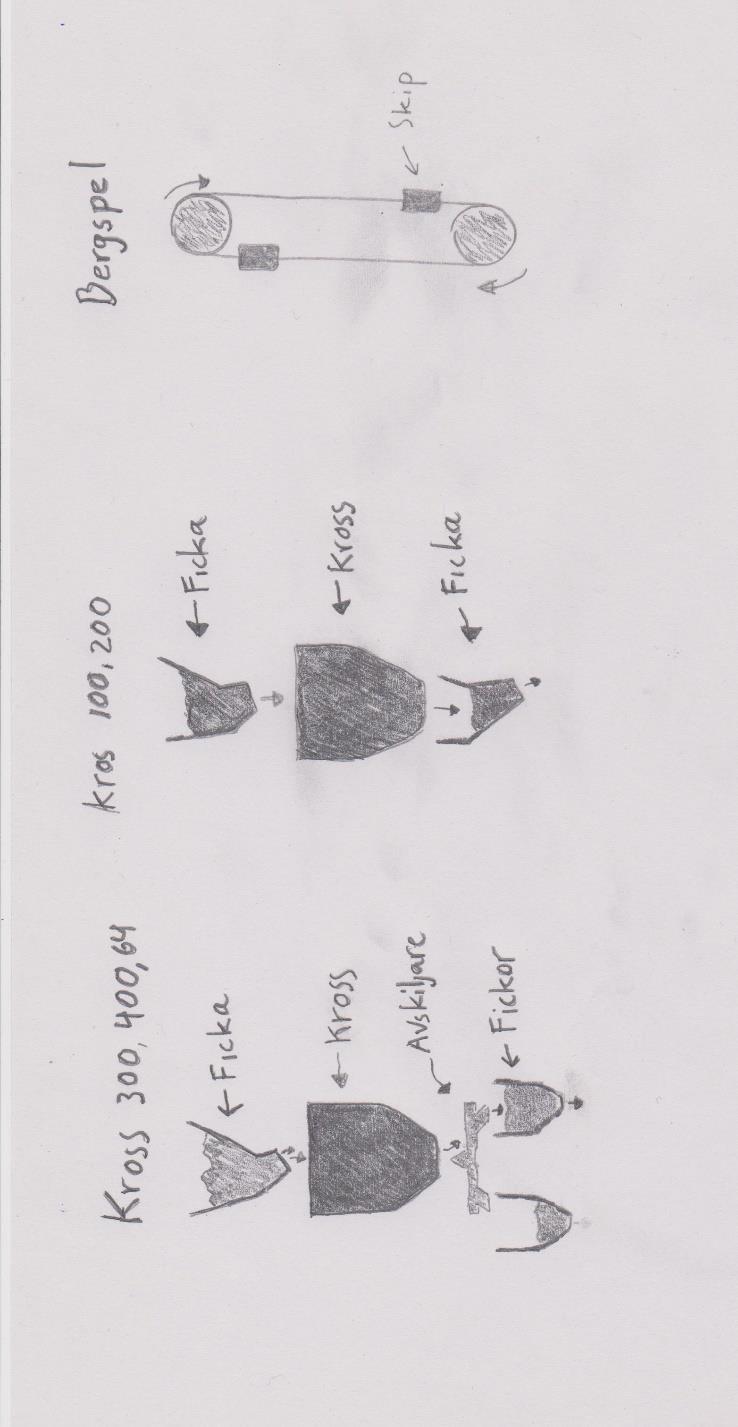 Kross 300, 400, 64
Ficka
Kross
Avskiljare
Fickor
Kros 100, 200
Ficka
Kross
Ficka
Bergspel
Skip